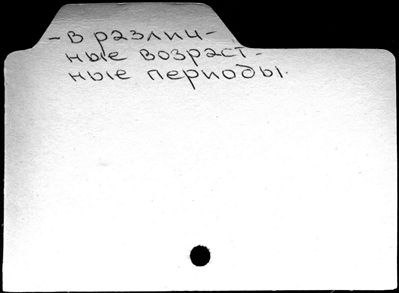 - в различ-
ные возраст-
ные периоды.